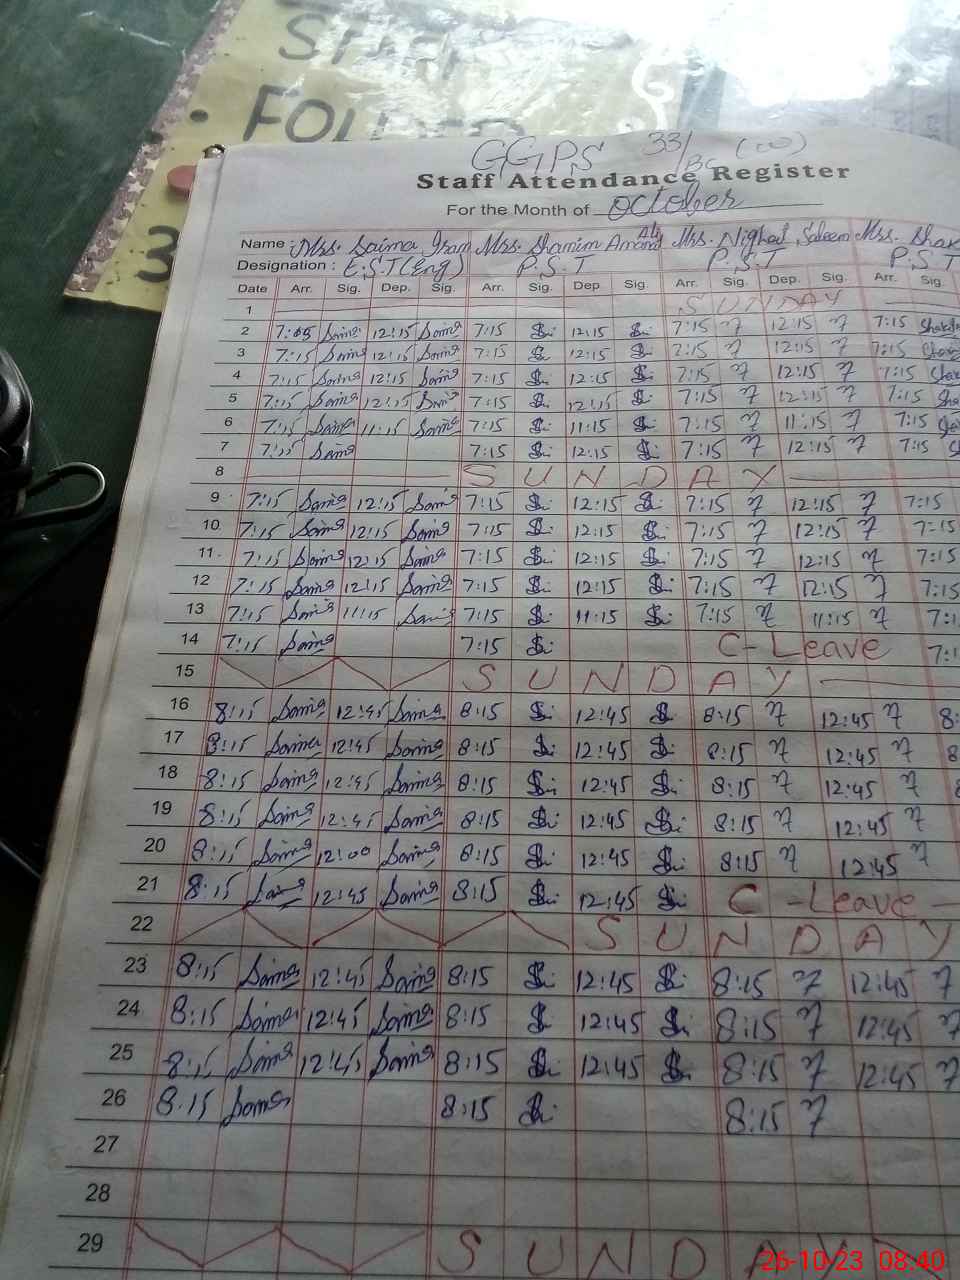 STAFF
FOLDER
3
GGPS 33/BC (W)
Staff Attendance Register
For the Month of October
Name : Mrs. Saima Iram Mrs. Shamim Amand Ali Mrs. Nighat Saleem Mrs. Shak
Designation : E.S.T (Eng) P.S.T P.S.T P.S.T
Date Arr. Sig. Dep. Sig. Arr. Sig. Dep. Sig. Arr. Sig. Dep. Sig. Arr. Sig.
1 SUNDAY
2 7:05 Saima 12:15 Saima 7:15 12:15 7:15 12:15 7:15
3 7:15 Saima 12:15 Saima 7:15 12:15 7:15 12:15 7:15
4 7:15 Saima 12:15 Saima 7:15 12:15 7:15 12:15 7:15
5 7:15 Saima 12:15 Saima 7:15 12:15 7:15 12:15 7:15
6 7:15 Saima 11:15 Saima 7:15 11:15 7:15 11:15 7:15
7 7:15 Saima 7:15 12:15 7:15 12:15 7:15
8 SUNDAY
9 7:15 Saima 12:15 Saima 7:15 12:15 7:15 12:15 7:15
10 7:15 Saima 12:15 Saima 7:15 12:15 7:15 12:15 7:15
11 7:15 Saima 12:15 Saima 7:15 12:15 7:15 12:15 7:15
12 7:15 Saima 12:15 Saima 7:15 12:15 7:15 12:15 7:15
13 7:15 Saima 11:15 Saima 7:15 11:15 7:15 11:15 7:1
14 7:15 Saima 7:15 C-Leave 7:1
15 SUNDAY
16 8:15 Saima 12:45 Saima 8:15 12:45 8:15 12:45 8:
17 8:15 Saima 12:45 Saima 8:15 12:45 8:15 12:45 8
18 8:15 Saima 12:45 Saima 8:15 12:45 8:15 12:45
19 8:15 Saima 12:45 Saima 8:15 12:45 8:15 12:45
20 8:15 Saima 12:00 Saima 8:15 12:45 8:15 12:45
21 8:15 Saima 12:45 Saima 8:15 12:45 C-Leave
22 SUNDAY
23 8:15 Saima 12:45 Saima 8:15 12:45 8:15 12:45
24 8:15 Saima 12:45 Saima 8:15 12:45 8:15 12:45
25 8:15 Saima 12:45 Saima 8:15 12:45 8:15 12:45
26 8:15 Saima 8:15 8:15
27
28
29 SUNDAY
26-10-23 08:40